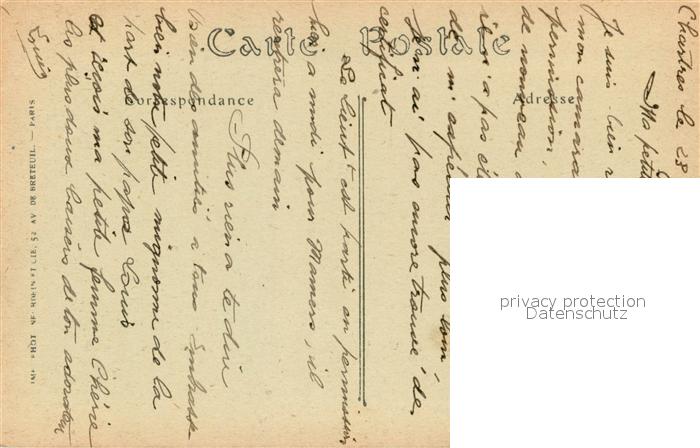 Carte Postale
Correspondance
Adresse
Chartres le 28
Ma petite
Je suis bien
mon camara
permission,
de nouveau
n'a pas
de m'espérer plus
Je n'ai pas encore trouvé de
certificat
Le Lieut est parti en permission
hier a midi pour Mamers, il
rentrera demain
Plus rien a te dire
Bien des amitiés a tous Embrasse
bien notre petite mignonne de la
part de son papa Louis
et reçois ma petite femme Chérie
les plus doux baisers de ton adorateur
Louis
IMP. PHOT. NEURDEIN ET CIE, 52 AV. DE BRETEUIL. — PARIS
privacy protection
Datenschutz